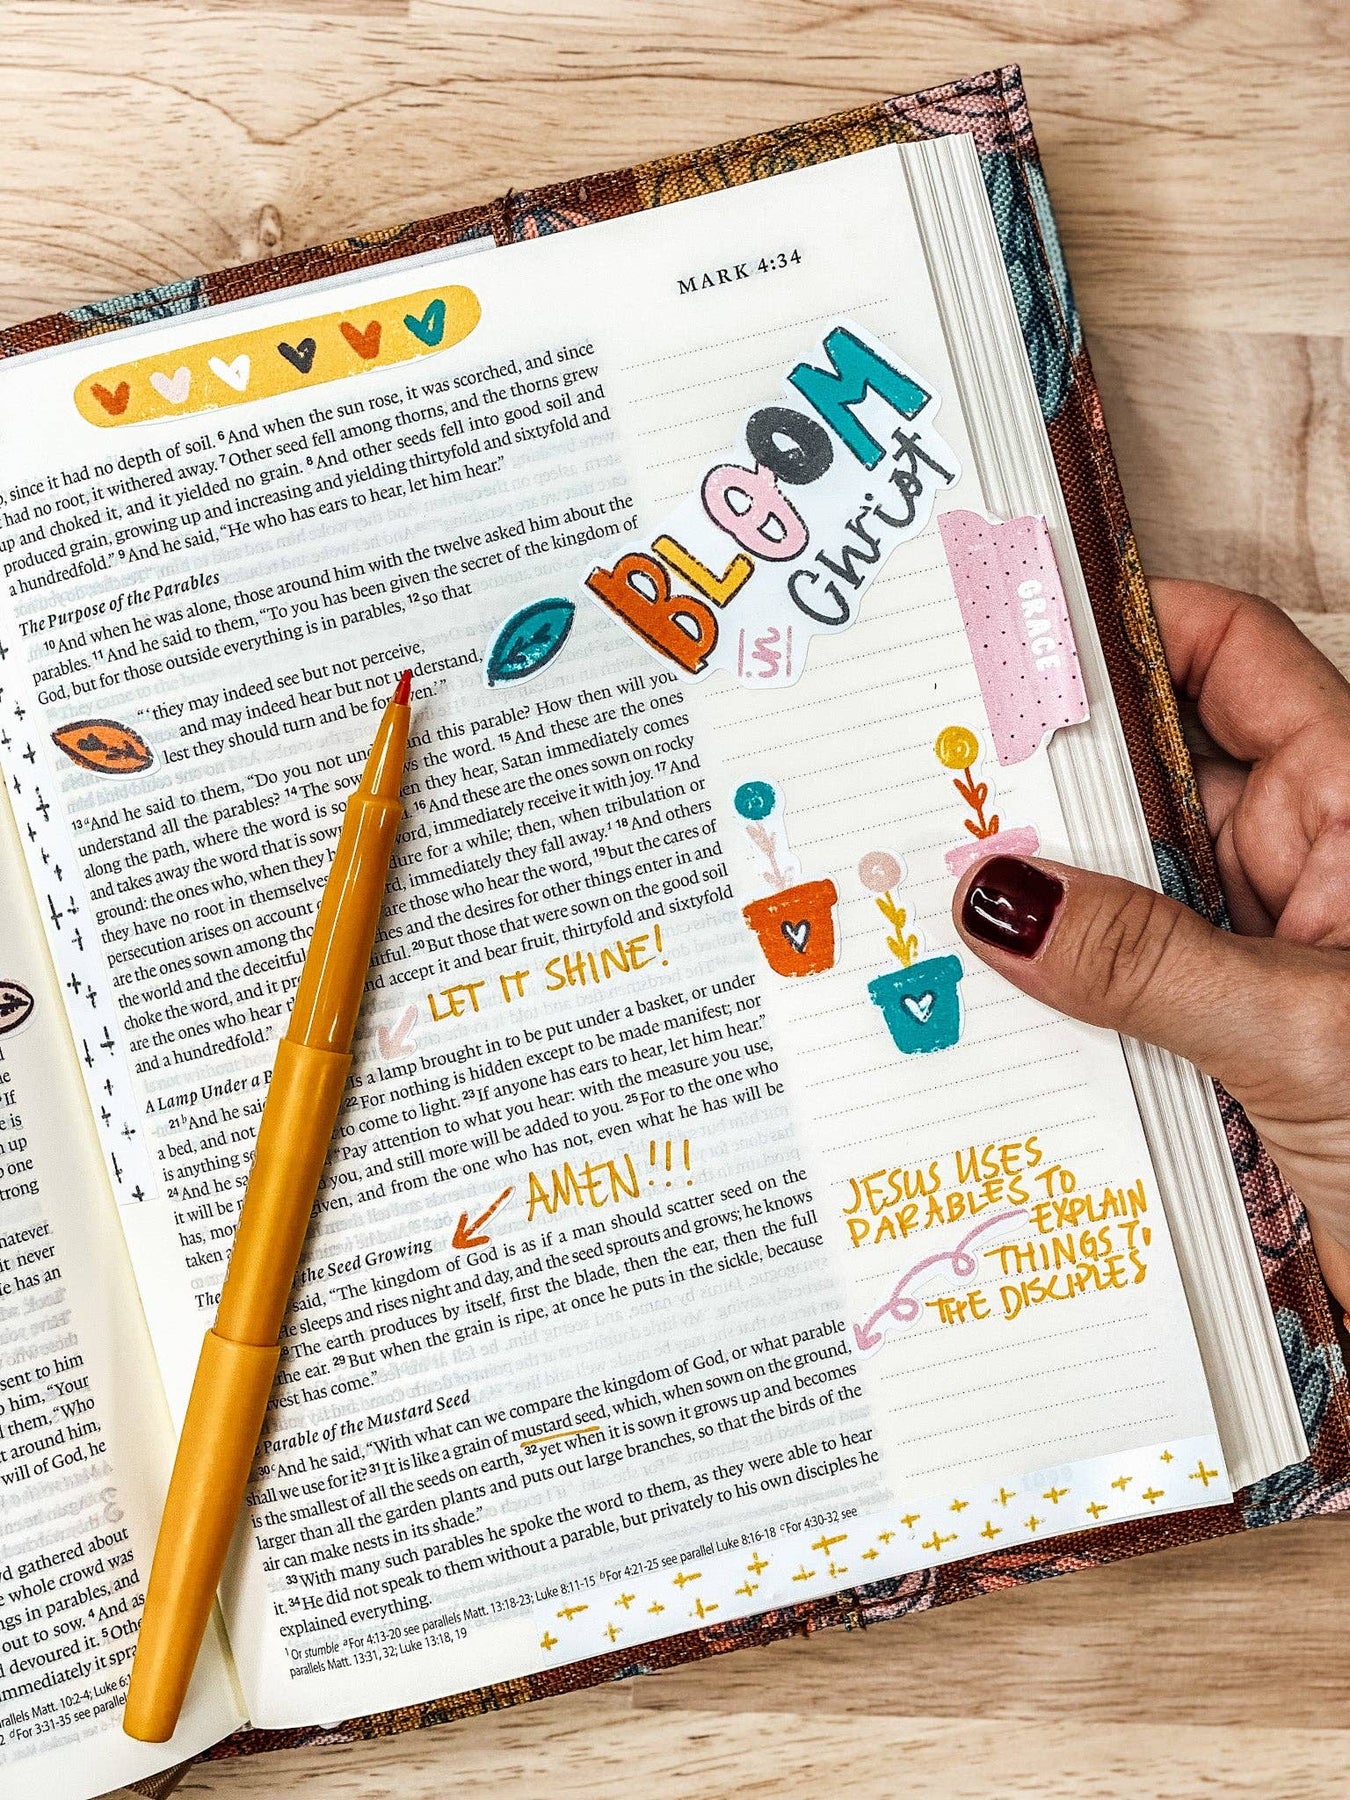 MARK 4:34
since it had no depth of soil. 6 And when the sun rose, it was scorched, and since
had no root, it withered away. 7 Other seed fell among thorns, and the thorns grew
up and choked it, and it yielded no grain. 8 And other seeds fell into good soil and
produced grain, growing up and increasing and yielding thirtyfold and sixtyfold and
a hundredfold.” 9 And he said, “He who has ears to hear, let him hear.”
The Purpose of the Parables
10 And when he was alone, those around him with the twelve asked him about the
parables. 11 And he said to them, “To you has been given the secret of the kingdom of
God, but for those outside everything is in parables, 12 so that
“‘they may indeed see but not perceive,
and may indeed hear but not understand,
lest they should turn and be for ven.’”
13 a And he said to them, “Do you not und and this parable? How then will you
understand all the parables? 14 The sow ws the word. 15 And these are the ones
along the path, where the word is so en they hear, Satan immediately comes
and takes away the word that is sow 16 And these are the ones sown on rocky
ground: the ones who, when they h ord, immediately receive it with joy. 17 And
they have no root in themselves dure for a while; then, when tribulation or
persecution arises on account rd, immediately they fall away.1 18 And others
are the ones sown among tho are those who hear the word, 19 but the cares of
the world and the deceitful hes and the desires for other things enter in and
choke the word, and it pr itful. 20 But those that were sown on the good soil
are the ones who hear th nd accept it and bear fruit, thirtyfold and sixtyfold
and a hundredfold.”
A Lamp Under a B
21 b And he said Is a lamp brought in to be put under a basket, or under
a bed, and not 22 For nothing is hidden except to be made manifest; nor
is anything se to come to light. 23 If anyone has ears to hear, let him hear.”
24 And he sa “Pay attention to what you hear: with the measure you use,
it will be you, and still more will be added to you. 25 For to the one who
has, mor given, and from the one who has not, even what he has will be
taken
The the Seed Growing
said, “The kingdom of God is as if a man should scatter seed on the
He sleeps and rises night and day, and the seed sprouts and grows; he knows
28 The earth produces by itself, first the blade, then the ear, then the full
the ear. 29 But when the grain is ripe, at once he puts in the sickle, because
vest has come.”
Parable of the Mustard Seed
30 c And he said, “With what can we compare the kingdom of God, or what parable
shall we use for it? 31 It is like a grain of mustard seed, which, when sown on the ground,
is the smallest of all the seeds on earth, 32 yet when it is sown it grows up and becomes
larger than all the garden plants and puts out large branches, so that the birds of the
air can make nests in its shade.”
33 With many such parables he spoke the word to them, as they were able to hear
it. 34 He did not speak to them without a parable, but privately to his own disciples he
explained everything.
1 Or stumble a For 4:13-20 see parallels Matt. 13:18-23; Luke 8:11-15 b For 4:21-25 see parallel Luke 8:16-18 c For 4:30-32 see
parallels Matt. 13:31, 32; Luke 13:18, 19
BLOOM
in Christ
GRACE
LET IT SHINE!
AMEN!!!
JESUS USES
PARABLES TO
EXPLAIN
THINGS TO
THE DISCIPLES
If
is
up
one
strong
whatever
it never
He has an
sent to him
him, “Your
them, “Who
at around him,
will of God, he
gathered about
whole crowd was
in parables, and
out to sow. 4 And as
devoured it. 5 Othe
immediately it spra
Matt. 10:2-4; Luke 6:1
d For 3:31-35 see parallel